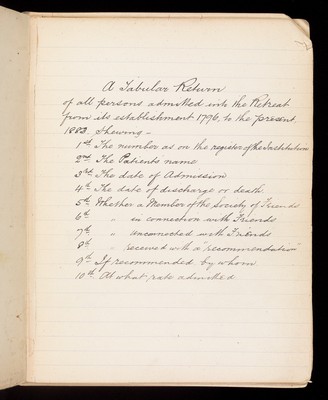 A Tabular Return
of all persons admitted into the Retreat
from its establishment 1796, to the present,
1883. Shewing –
1st The number as on the register of the Institution
2nd The Patients name
3rd The date of Admission
4th The date of discharge or death.
5th Whether a Member of the Society of Friends
6th " in connection with Friends
7th " unconnected with Friends
8th " received with a "recommendation"
9th If recommended by whom
10th At what rate admitted